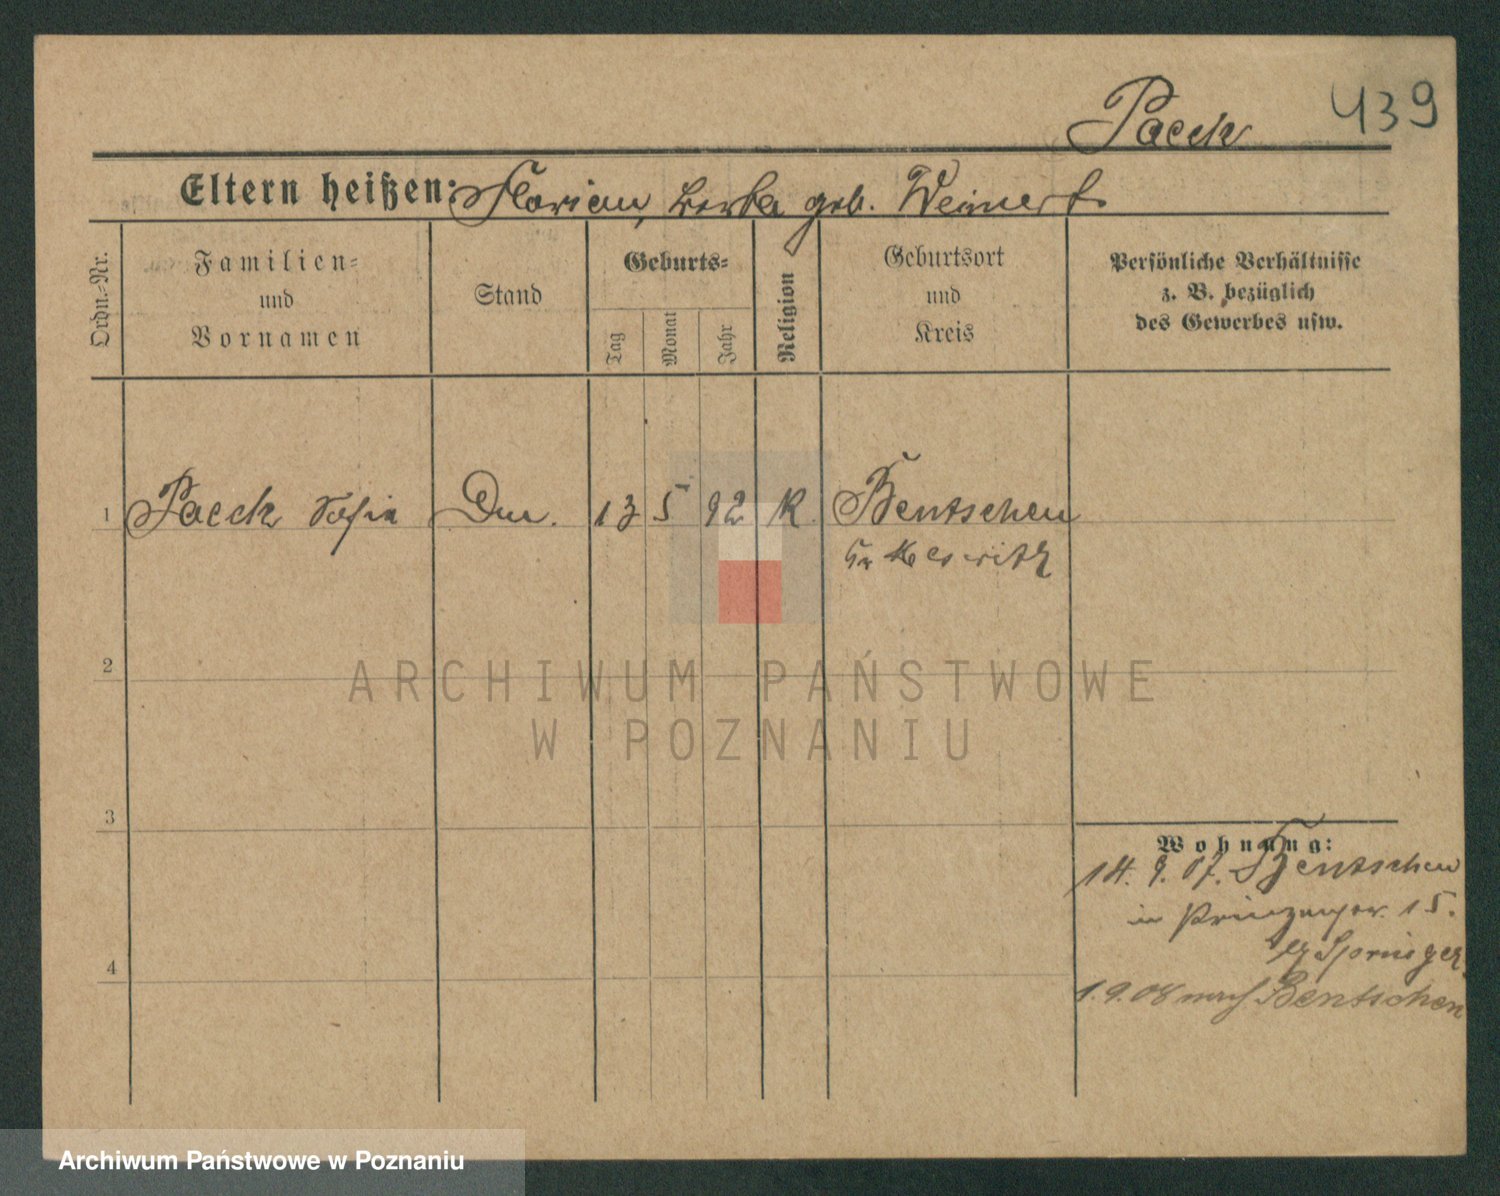 439
Paeck
Eltern heißen: Florian, geb. Weinert
Ordn.-Nr.
Familien-
und
Vornamen
Stand
Geburts-
Tag
Monat
Jahr
Religion
Geburtsort
und
Kreis
Persönliche Verhältnisse
z. B. bezüglich
des Gewerbes usw.
1 Paeck Sofie 13 5 92 K. Bentschen
Kr Meseritz
2
3
4
Wohnung:
14. 9. 07. Bentschen
in 15.
1.9.08 nach Bentschen
ARCHIWUM PAŃSTWOWE
W POZNANIU
Archiwum Państwowe w Poznaniu